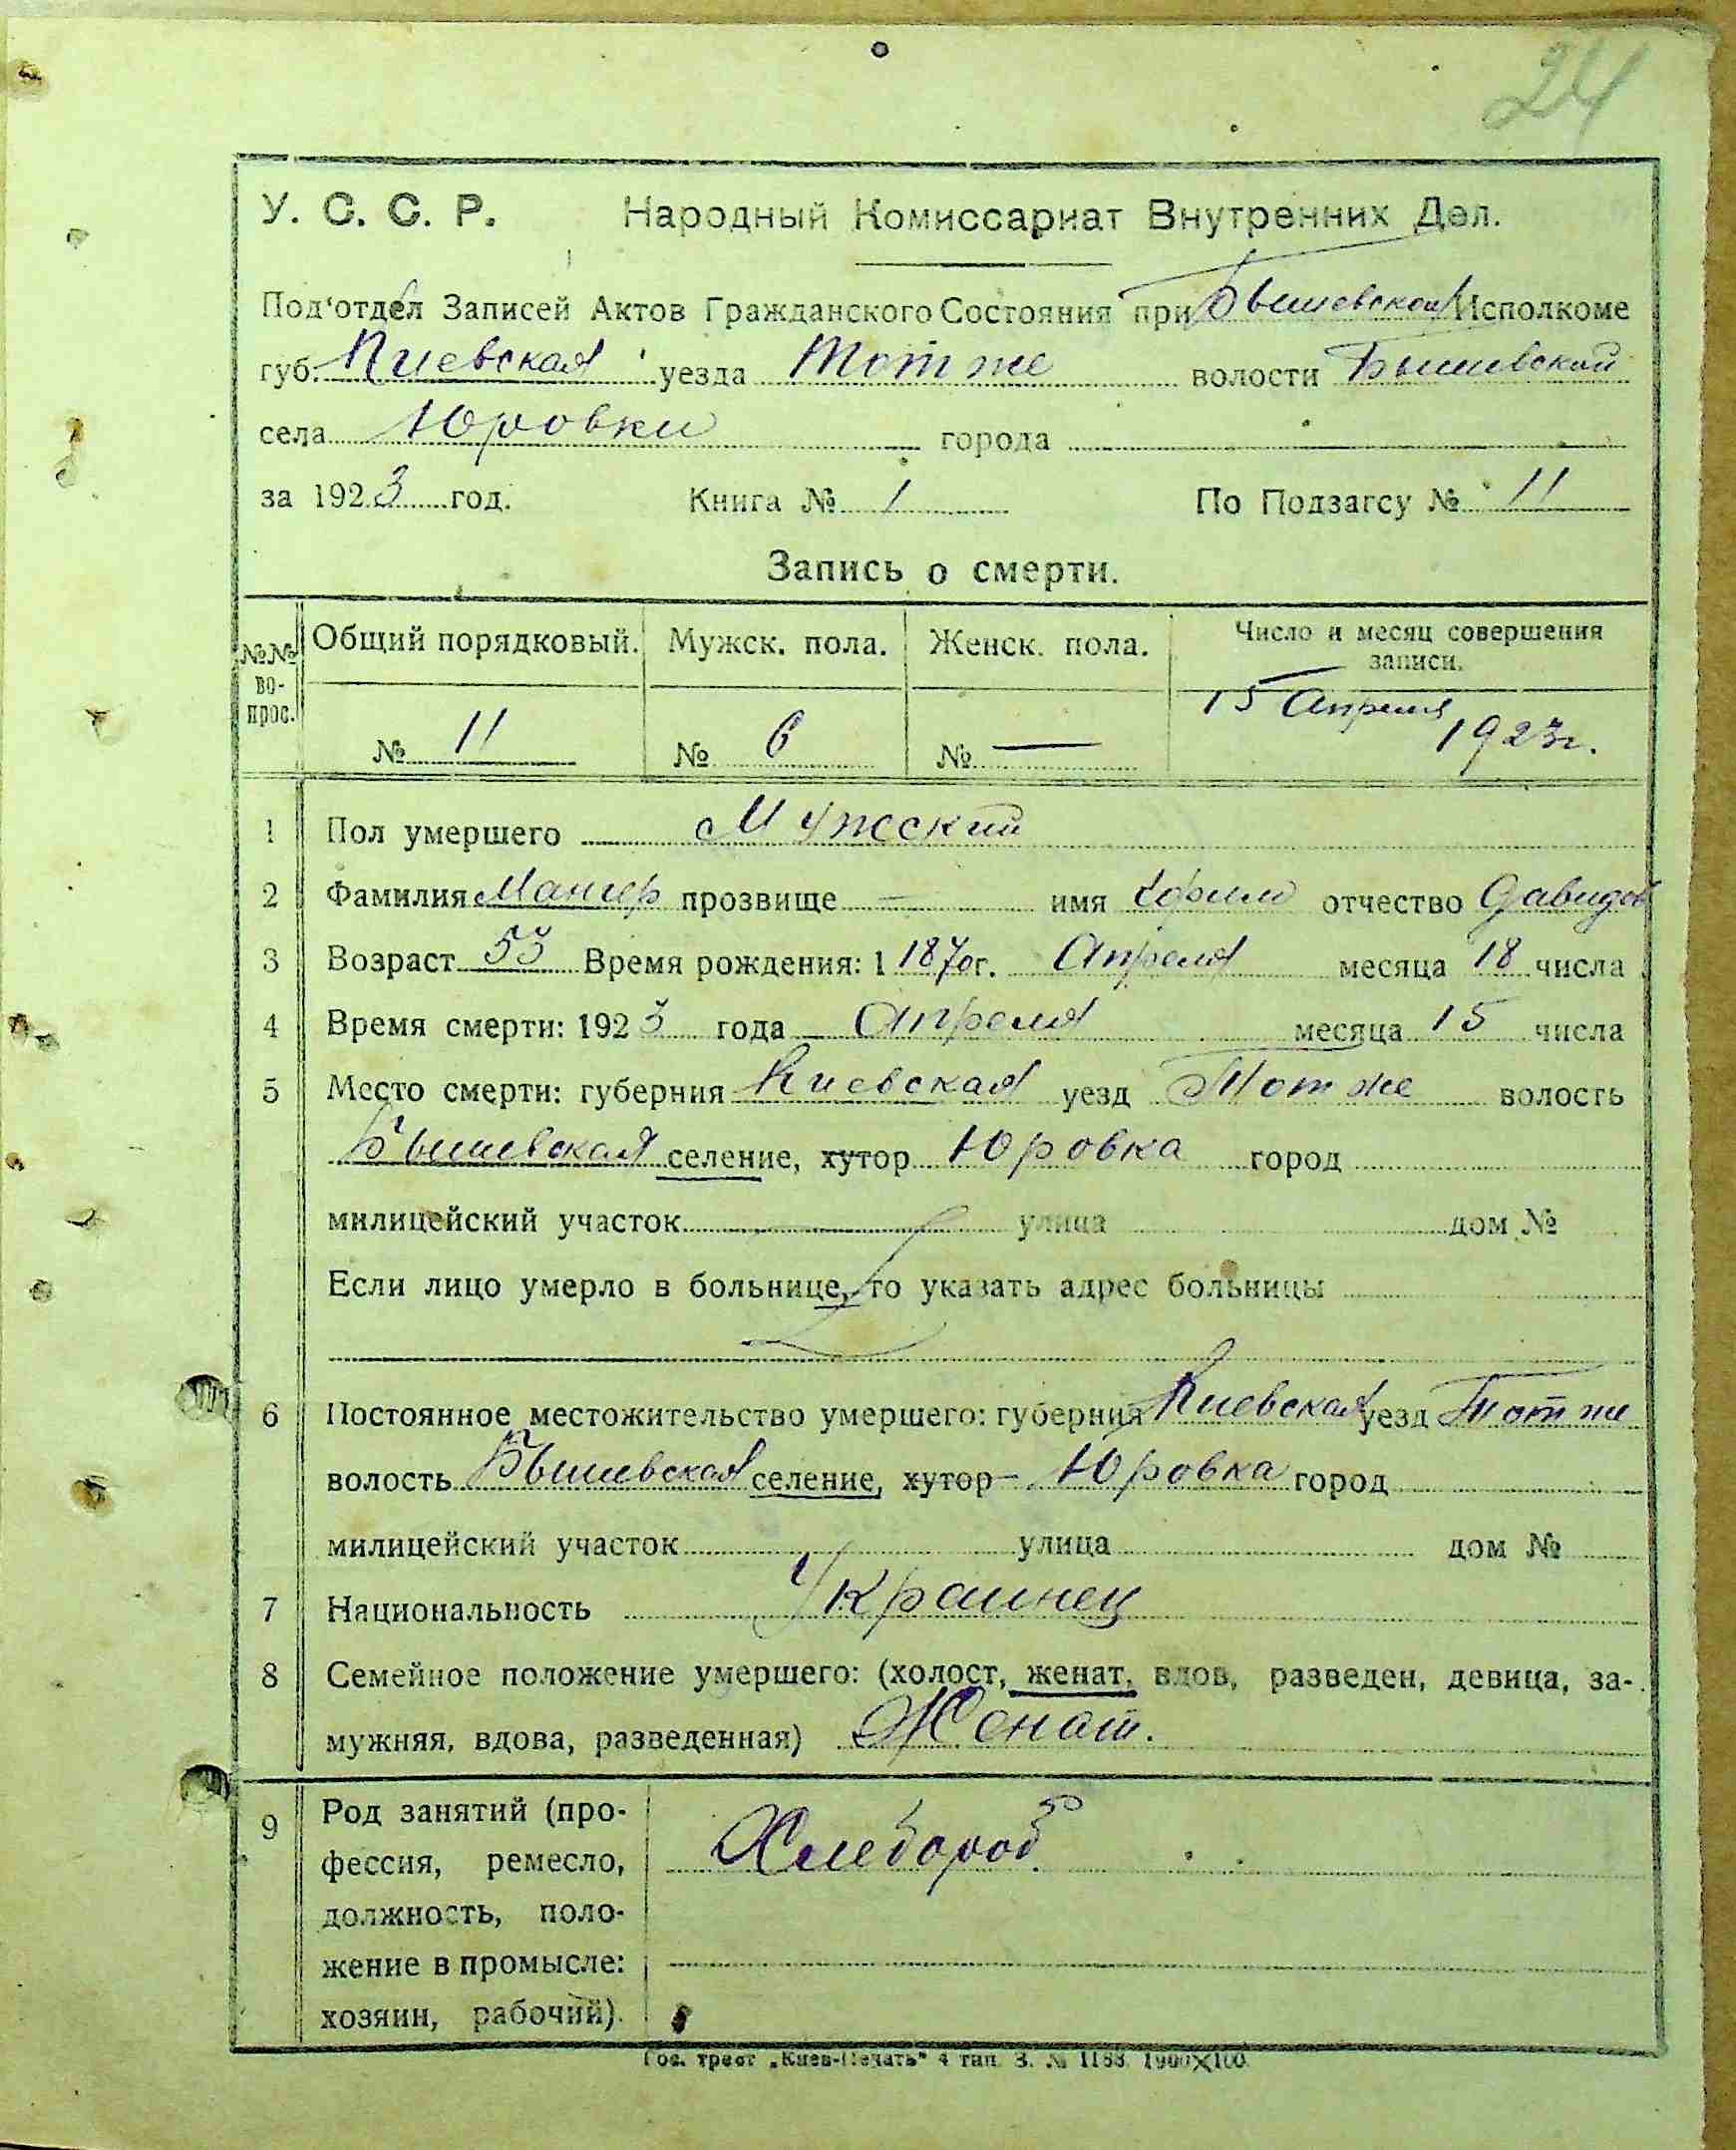 24
У. С. С. Р. Народный Комиссариат Внутренних Дел.
Под'отдел Записей Актов Гражданского Состояния при Бышевском Исполкоме
губ. Киевская уезда Тот же волости Бышевской
села Юровки города
за 1923 год. Книга № 1 По Подзагсу № 11
Запись о смерти.
№№ во-прос. Общий порядковый. Мужск. пола. Женск. пола. Число и месяц совершения записи.
№ 11 № 6 № — 15 Апреля 1923 г.
1 Пол умершего Мужский
2 Фамилия прозвище — имя Ефим отчество Давидов
3 Возраст 53 Время рождения: 1 1870 г. Апреля месяца 18 числа
4 Время смерти: 1923 года Апреля месяца 15 числа
5 Место смерти: губерния Киевская уезд Тот же волость
Бышевская селение, хутор Юровка город
милицейский участок улица дом №
Если лицо умерло в больнице, то указать адрес больницы
6 Постоянное местожительство умершего: губерния Киевская уезд Тот же
волость Бышевская селение, хутор Юровка город
милицейский участок улица дом №
7 Национальность Украинец
8 Семейное положение умершего: (холост, женат, вдов, разведен, девица, за-
мужняя, вдова, разведенная) Женат.
9 Род занятий (про-
фессия, ремесло, Хлебороб
должность, поло-
жение в промысле:
хозяин, рабочий).
Гос. трест „Киев-Печать" 4 тип. З. № 1168. 1900×100.